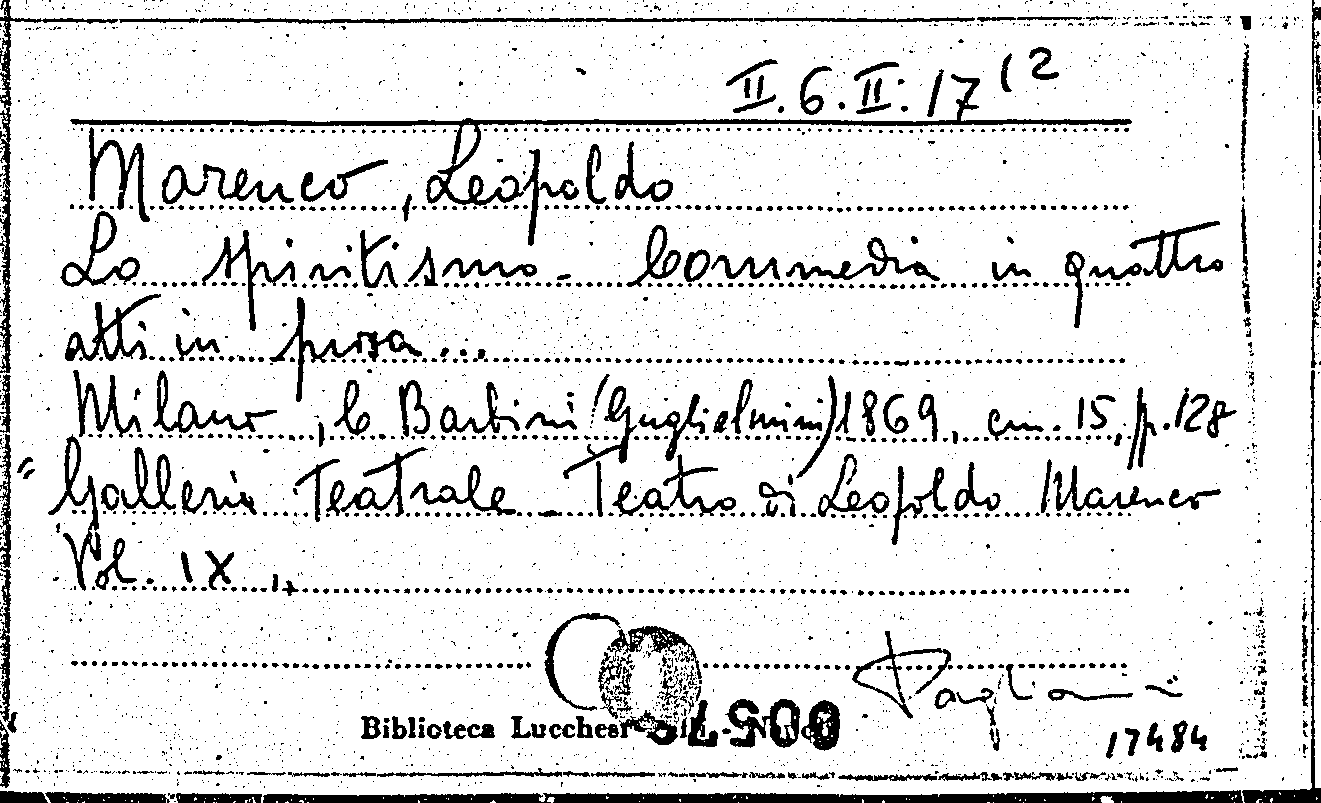 II.6.II.17 (2
Marenco, Leopoldo
Lo spiritismo - Commedia in quattro
atti in prosa...
Milano, C Barbini (Guglielmini) 1869, cm. 15, p. 128
"Galleria Teatrale - Teatro di Leopoldo Marenco
Vol. IX"
Pagliaini
Biblioteca Lucchesi
17484